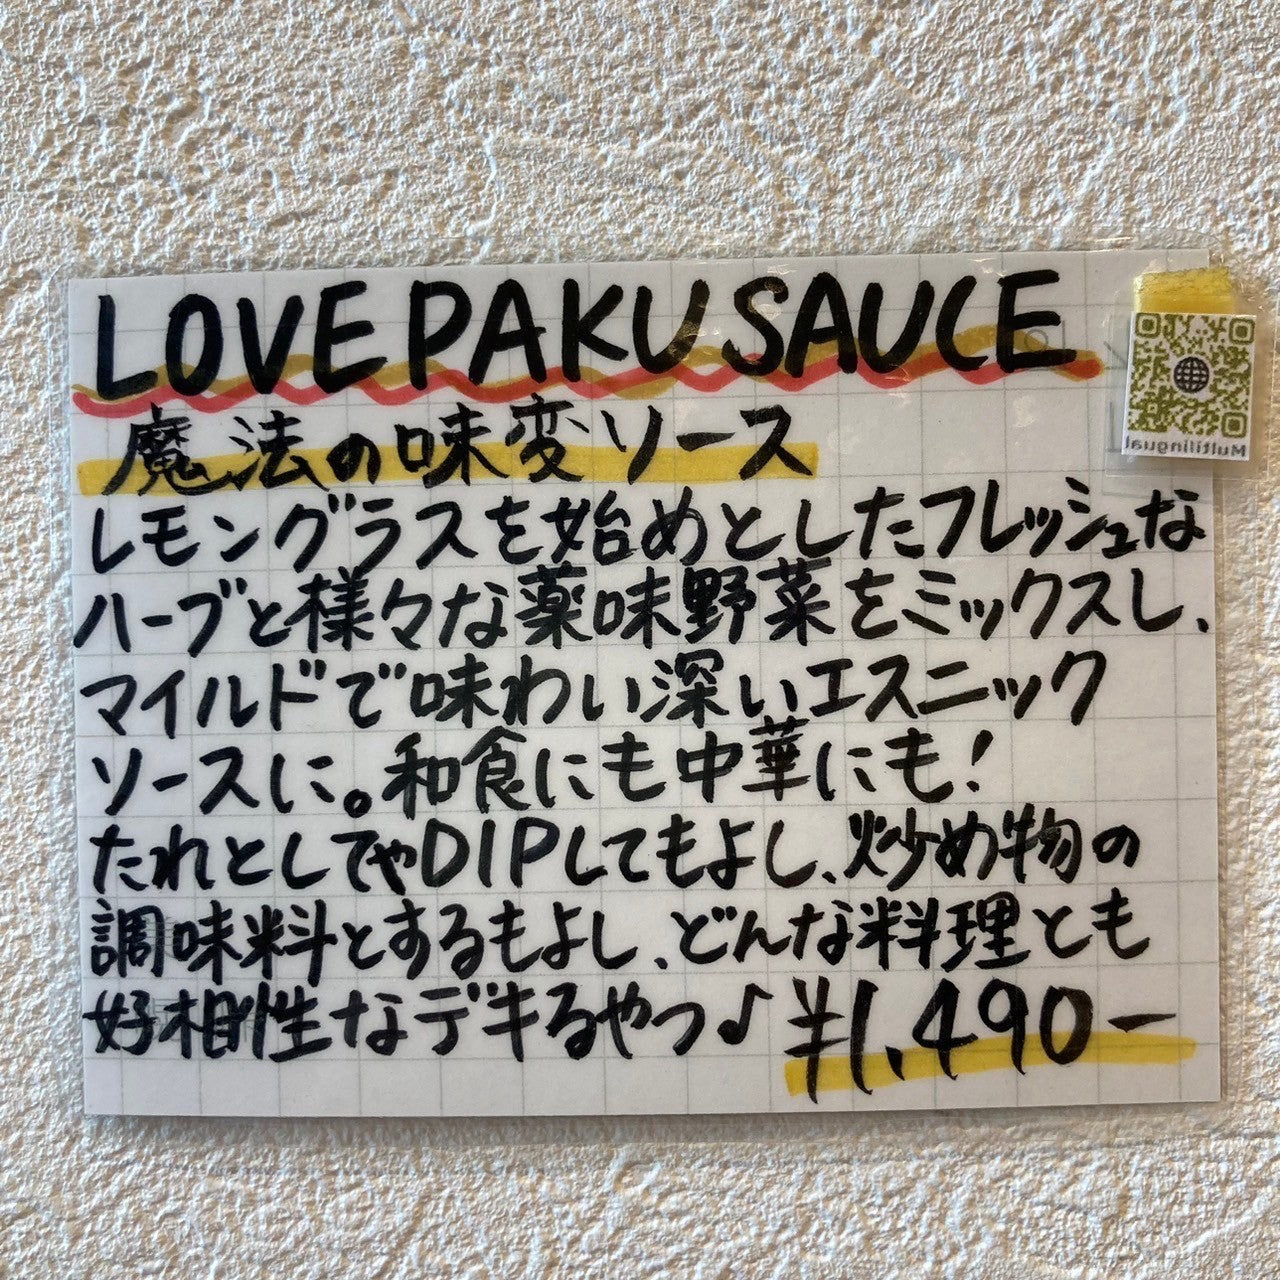 LOVE PAKU SAUCE
魔法の味変ソース
レモングラスを始めとしたフレッシュな
ハーブと様々な薬味野菜をミックスし、
マイルドで味わい深いエスニック
ソースに。和食にも中華にも!
たれとしてやDIPしてもよし、炒め物の
調味料とするもよし、どんな料理とも
好相性なデキるやつ♪ ¥1,490-
Multilingual